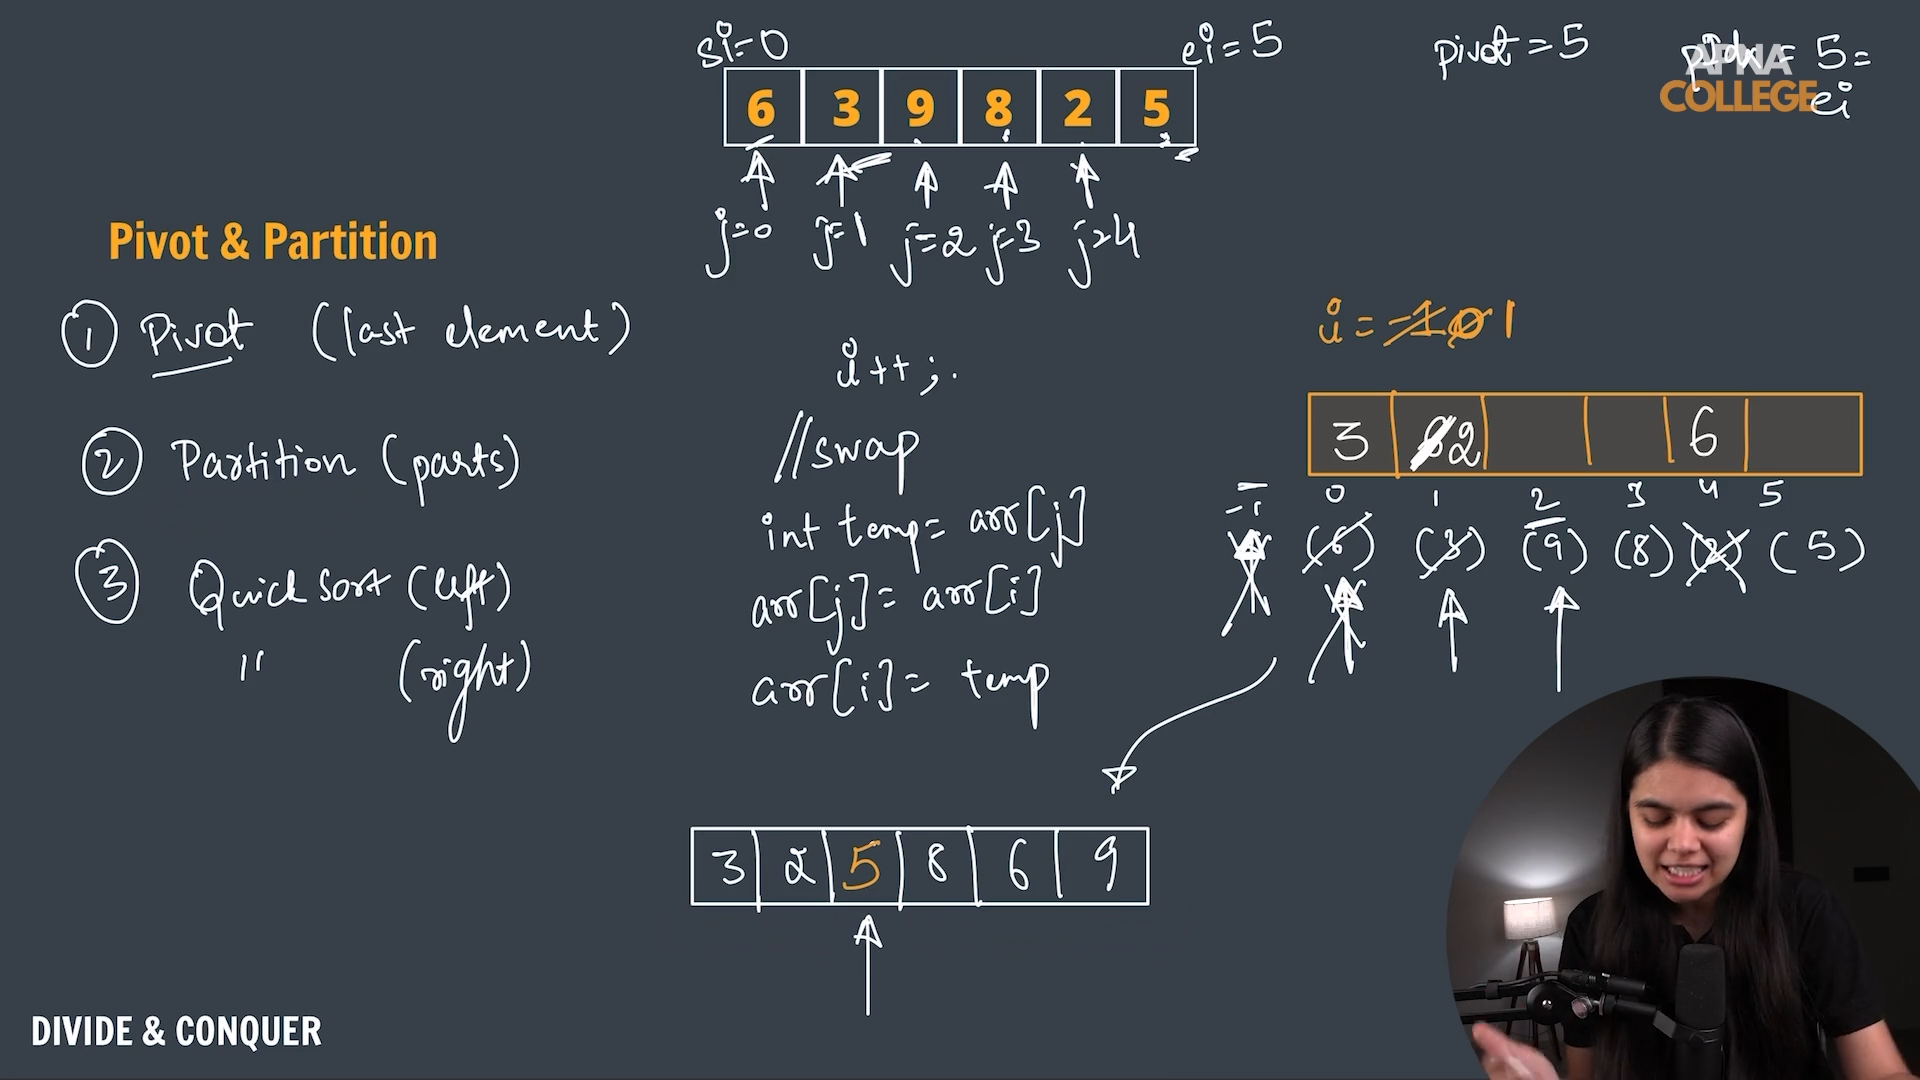 si=0
ei=5
pivot=5
pIdx = 5 =
ei
APNA
COLLEGE
6 3 9 8 2 5
j=0 j=1 j=2 j=3 j=4
Pivot & Partition
1 Pivot (last element)
2 Partition (parts)
3 Quick Sort (left)
" (right)
i++;
//swap
int temp= arr[j]
arr[j]= arr[i]
arr[i]= temp
i = -1 0 1
3 2 6
-1 0 1 2 3 4 5
(6) (3) (9) (8) (2) (5)
3 2 5 8 6 9
DIVIDE & CONQUER